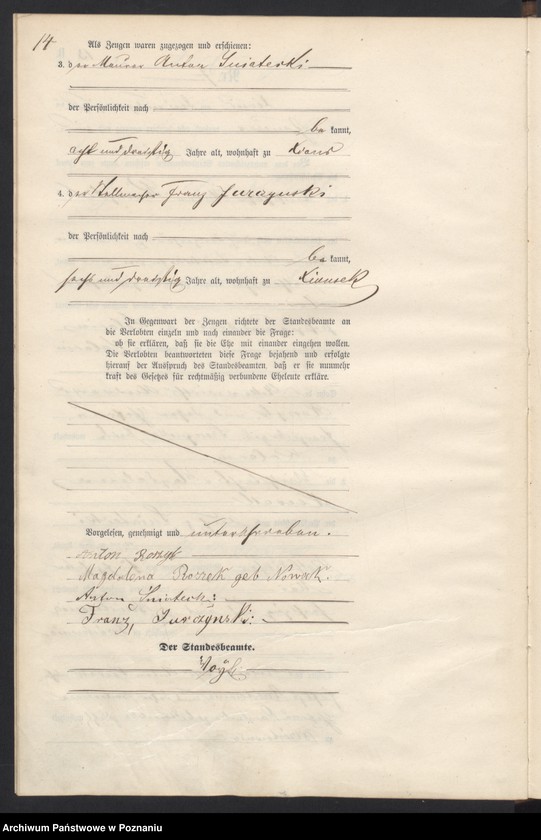 14
Als Zeugen waren zugezogen und erschienen:
3. der Maurer Anton Sniaterki
der Persönlichkeit nach
be kannt,
acht und dreißig Jahre alt, wohnhaft zu Xions
4. der Stellmacher Franz Jurzynski
der Persönlichkeit nach
be kannt,
sechs und dreißig Jahre alt, wohnhaft zu Xionsek
In Gegenwart der Zeugen richtete der Standesbeamte an
die Verlobten einzeln und nach einander die Frage:
ob sie erklären, daß sie die Ehe mit einander eingehen wollen.
Die Verlobten beantworteten diese Frage bejahend und erfolgte
hierauf der Ausspruch des Standesbeamten, daß er sie nunmehr
kraft des Gesetzes für rechtmäßig verbundene Eheleute erkläre.
Vorgelesen, genehmigt und unterschrieben.
Anton
Magdalena Rozzek geb
Anton
Franz Jurzynski
Der Standesbeamte.
Archiwum Państwowe w Poznaniu